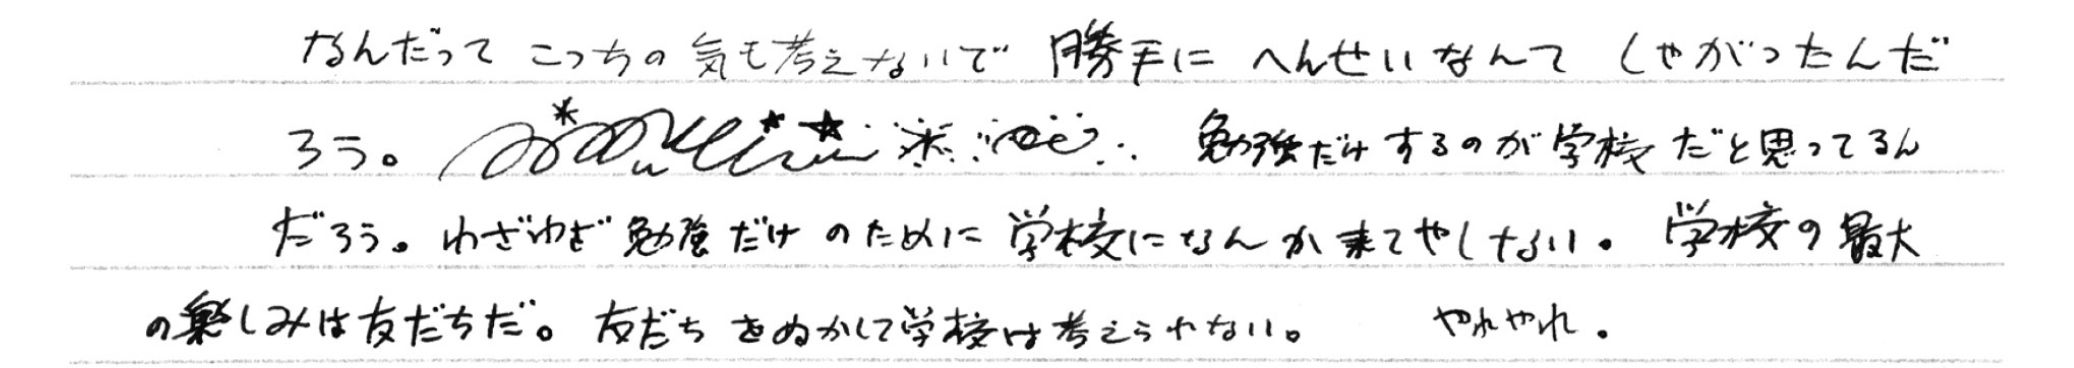 なんだって こっちの気も考えないで 勝手に へんせいなんて しやがったんだ
ろう。 勉強だけするのが学校だと思ってるん
だろう。わざわざ勉強だけのために学校になんか来てやしない。学校の最大
の楽しみは友だちだ。友だちをぬかして学校は考えられない。 やれやれ。